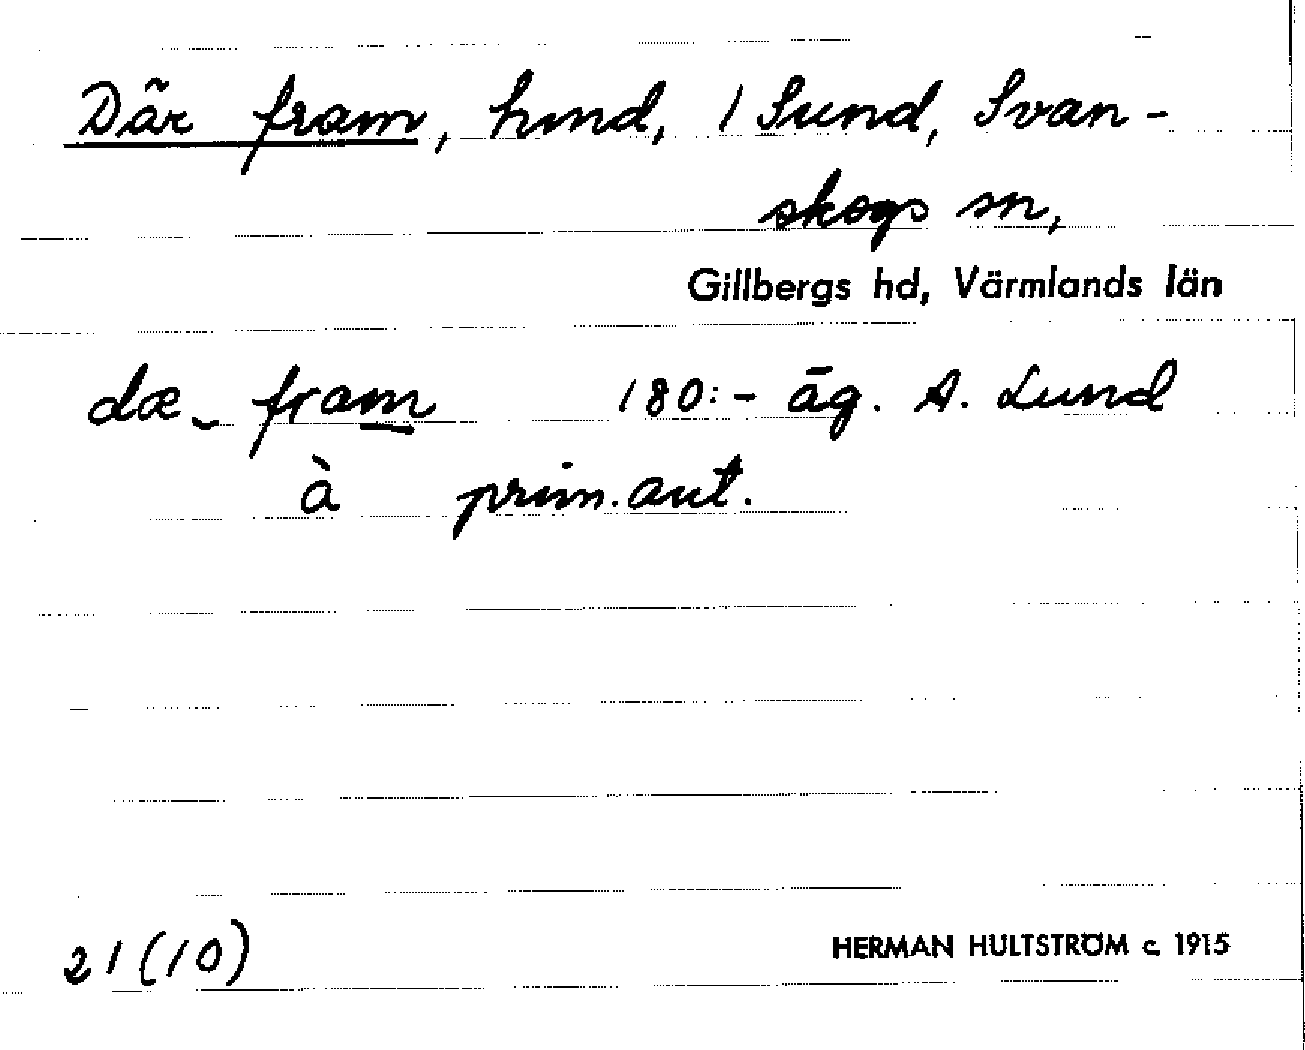 Där fram, hmd, 1 Sund, Svan-
skogs sn,
Gillbergs hd, Värmlands län
dæ- fram 180:- äg. A. Lund
à prim. aut.
21(10) HERMAN HULTSTRÖM c. 1915